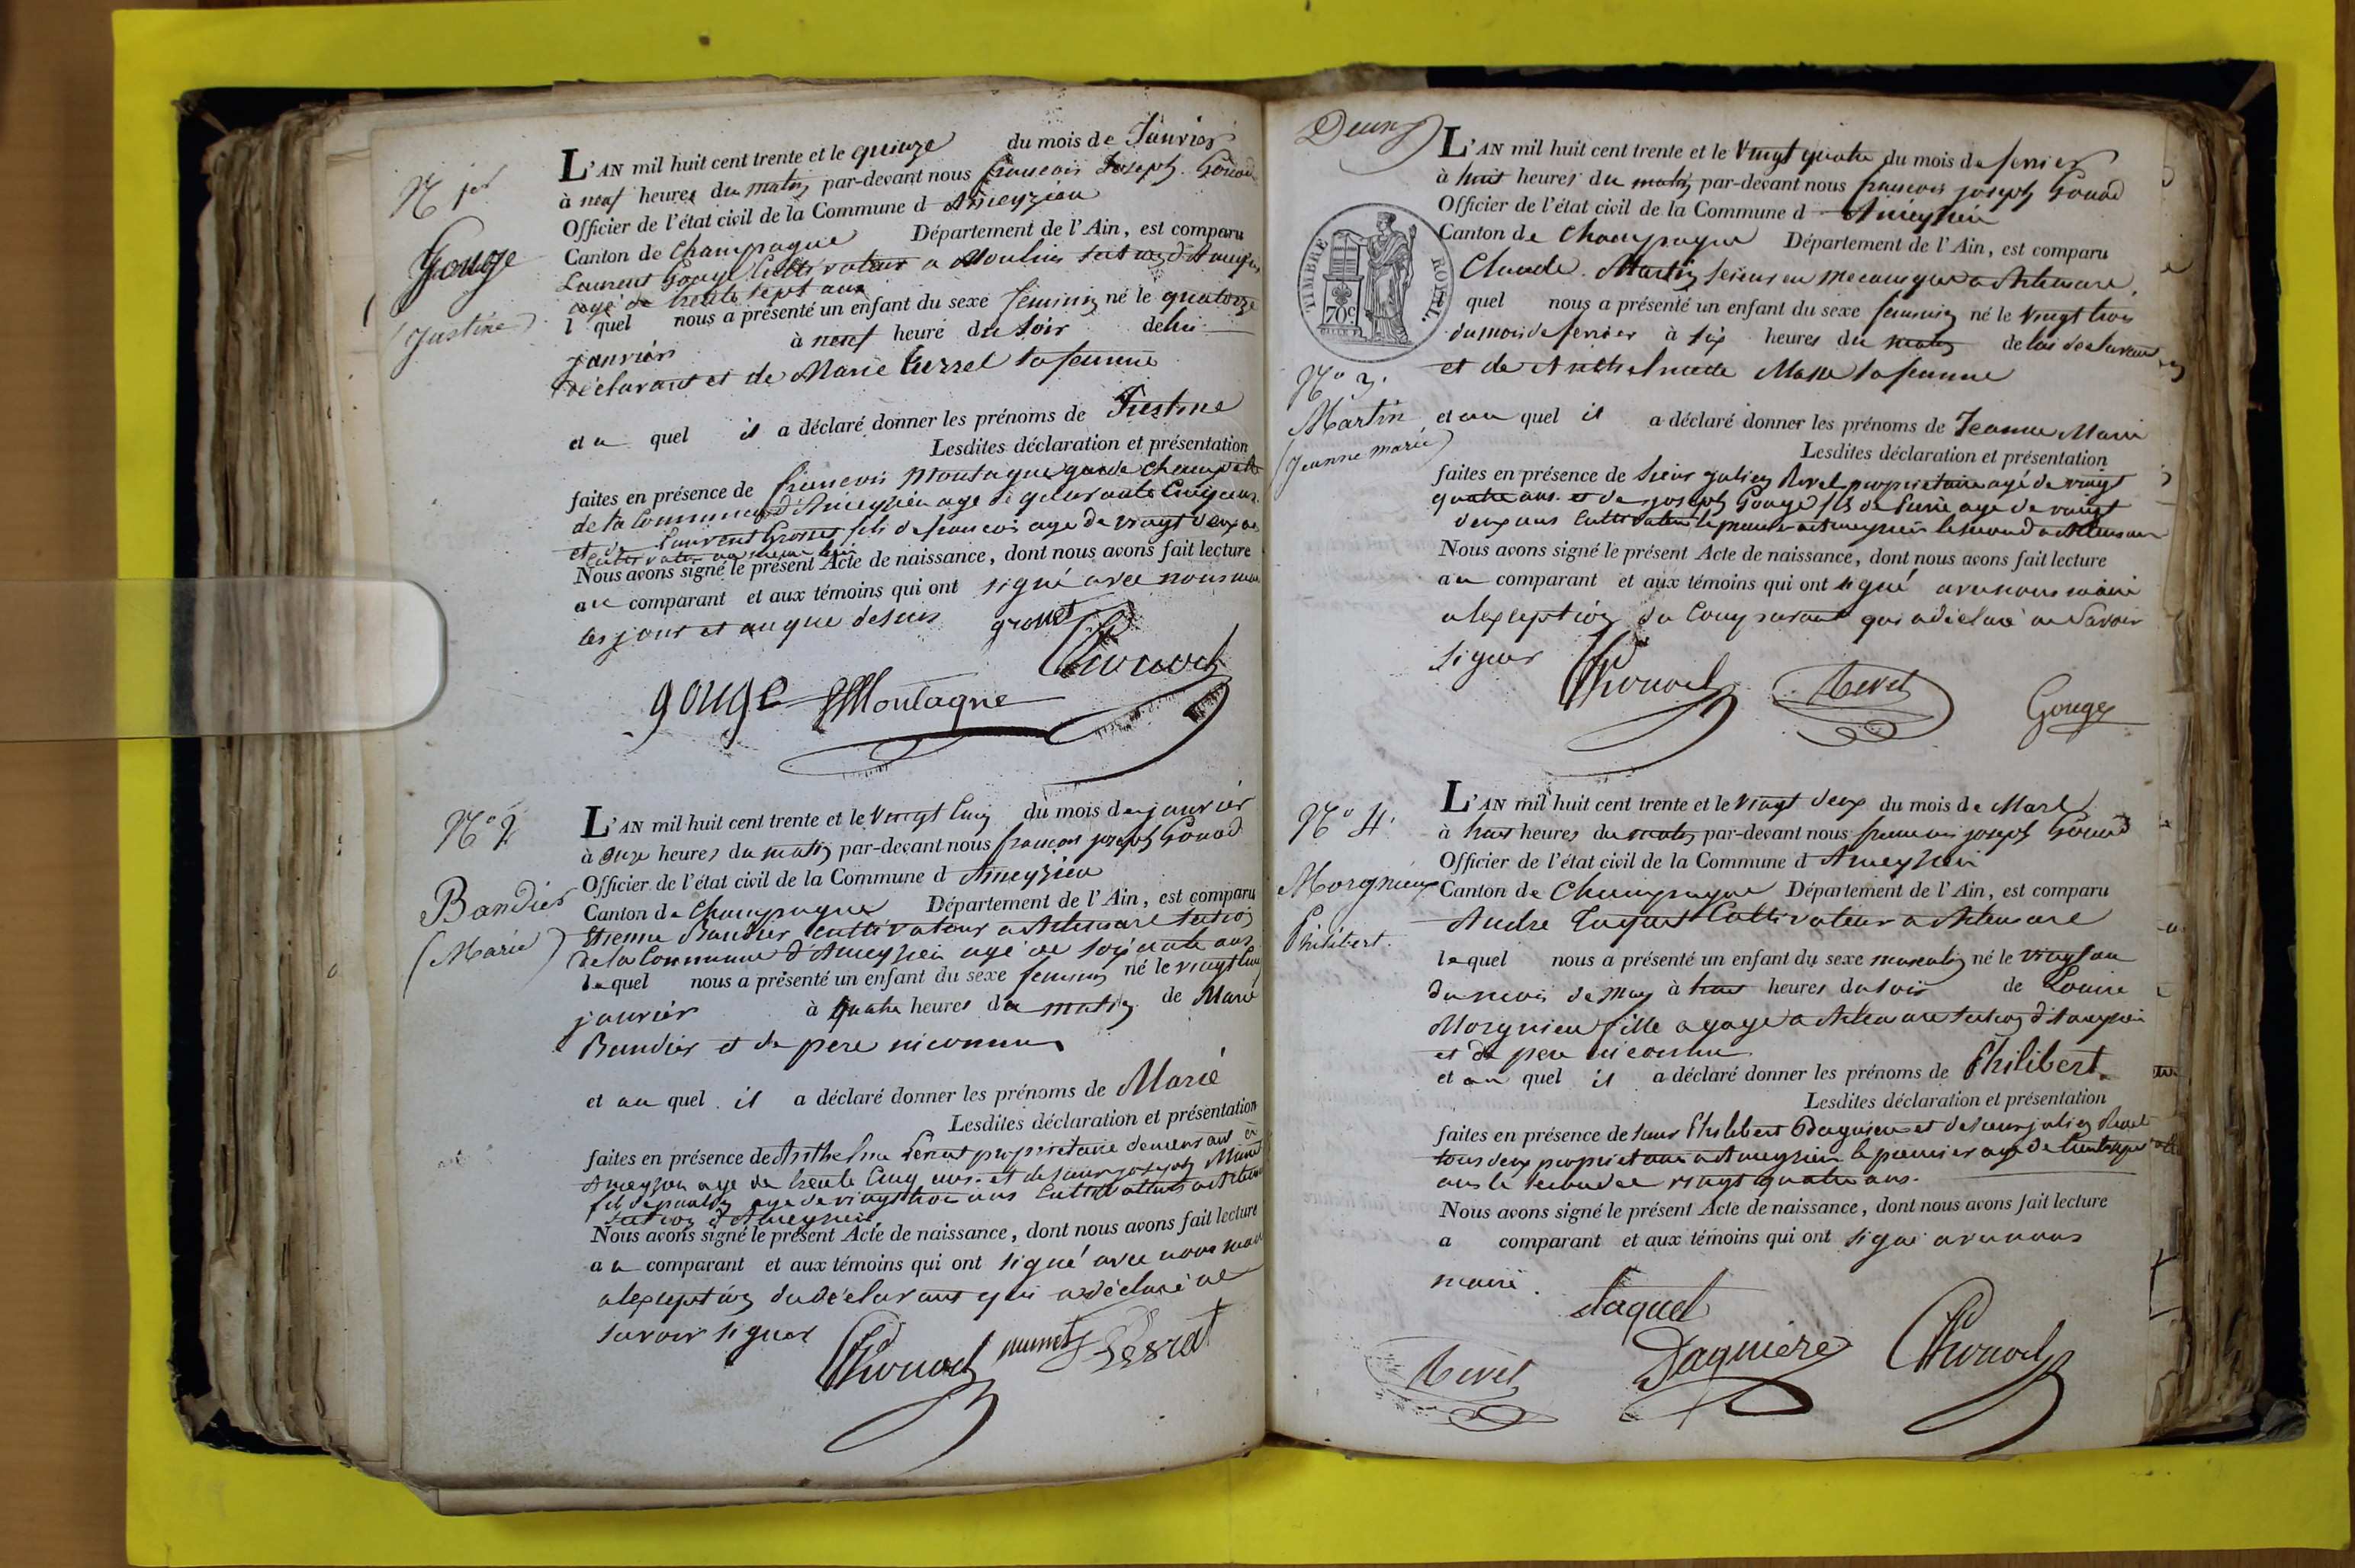 N 1er
Gouge
(Justine)
L'AN mil huit cent trente et le quinze du mois de Janvier
à neuf heures du matin par-devant nous francois Joseph Gonod
Officier de l'état civil de la Commune d Ameyzieu
Canton de Champagne Département de l'Ain, est comparu
Laurent Gouge Cultivateur a Moulin
agé de trente sept ans
l quel nous a présenté un enfant du sexe feminin né le quatorze
janvier à neuf heure du soir de lui
déclarant et de Marie sa femme
et a quel il a déclaré donner les prénoms de Justine
Lesdites déclaration et présentation
faites en présence de francois Montagne garde Champetre
de la Commune d'Ameyzieu agé de quarante Cinq ans
et de Laurent Grosset fils de francois age de vingt deux ans
cultivateur au meme lieu
Nous avons signé le présent Acte de naissance, dont nous avons fait lecture
au comparant et aux témoins qui ont signé avec nous maire
les jour et an que dessus grosset
Gonod
gouge Montagne
N° 2
Bandier
(Marie)
L'AN mil huit cent trente et le vingt Cinq du mois de janvier
à onze heures du matin par-devant nous francois joseph Gonod
Officier de l'état civil de la Commune d Ameyzieu
Canton de Champagne Département de l'Ain, est comparu
Etienne Bandier cultivateur a Artemare section
de la Commune d'Ameyzieu agé de soixante ans
lequel nous a présenté un enfant du sexe feminin né le vingt Cinq
janvier à quatre heures du matin de Marie
Bandier et de pere inconnu
et au quel il a déclaré donner les prénoms de Marie
Lesdites déclaration et présentation
faites en présence de Anthelme proprietaire demeurant a
Ameyzieu age de trente Cinq ans et de sieur joseph Munet
fils de age de vingt trois ans Cultivateur a Artemare
section d'Ameyzieu
Nous avons signé le présent Acte de naissance, dont nous avons fait lecture
au comparant et aux témoins qui ont signé avec nous maire
a lexception du déclarant qui a déclaré ne
savoir signer
Gonod munet
Deux
TIMBRE ROYAL
70c
N° 3.
Martin
(Jeanne marie)
L'AN mil huit cent trente et le vingt quatre du mois de fevrier
à huit heures du matin par-devant nous francois joseph Gonod
Officier de l'état civil de la Commune d Ameyzieu
Canton de Champagne Département de l'Ain, est comparu
Claude Martin serieur en mecanique a Artemare
quel nous a présenté un enfant du sexe feminin né le vingt trois
du mois de fevrier à six heures du matin de lui declarant
et de Anthelmette Masse sa femme
et au quel il a déclaré donner les prénoms de Jeanne Marie
Lesdites déclaration et présentation
faites en présence de Sieur julien Revel proprietaire agé de vingt
quatre ans et de joseph Gouge fils de age de vingt
deux ans Cultivateur le premier a Ameyzieu le second a Artemare
Nous avons signé le présent Acte de naissance, dont nous avons fait lecture
au comparant et aux témoins qui ont signé avec nous maire
a lexception du Comparant qui a déclaré ne savoir
signer Gonod Revel Gouge
N° 4.
Morgnieux
Philibert.
L'AN mil huit cent trente et le vingt deux du mois de Mars
à huit heures du matin par-devant nous francois joseph Gonod
Officier de l'état civil de la Commune d Ameyzieu
Canton de Champagne Département de l'Ain, est comparu
Andre Taquet Cultivateur a Artemare
lequel nous a présenté un enfant du sexe masculin né le vingt un
du mois de à heures du soir de Louise
Morgnieu fille a gage a Artemare section d'Ameyzieu
et de pere inconnu
et au quel il a déclaré donner les prénoms de Philibert
Lesdites déclaration et présentation
faites en présence de sieur Philibert Daguiere et de sieur julien Revel
tous deux proprietaire a Ameyzieu le premier age de
ans le second de vingt quatre ans.
Nous avons signé le présent Acte de naissance, dont nous avons fait lecture
a comparant et aux témoins qui ont signé avec nous
maire. Taquet
Revel Daguiere Gonod